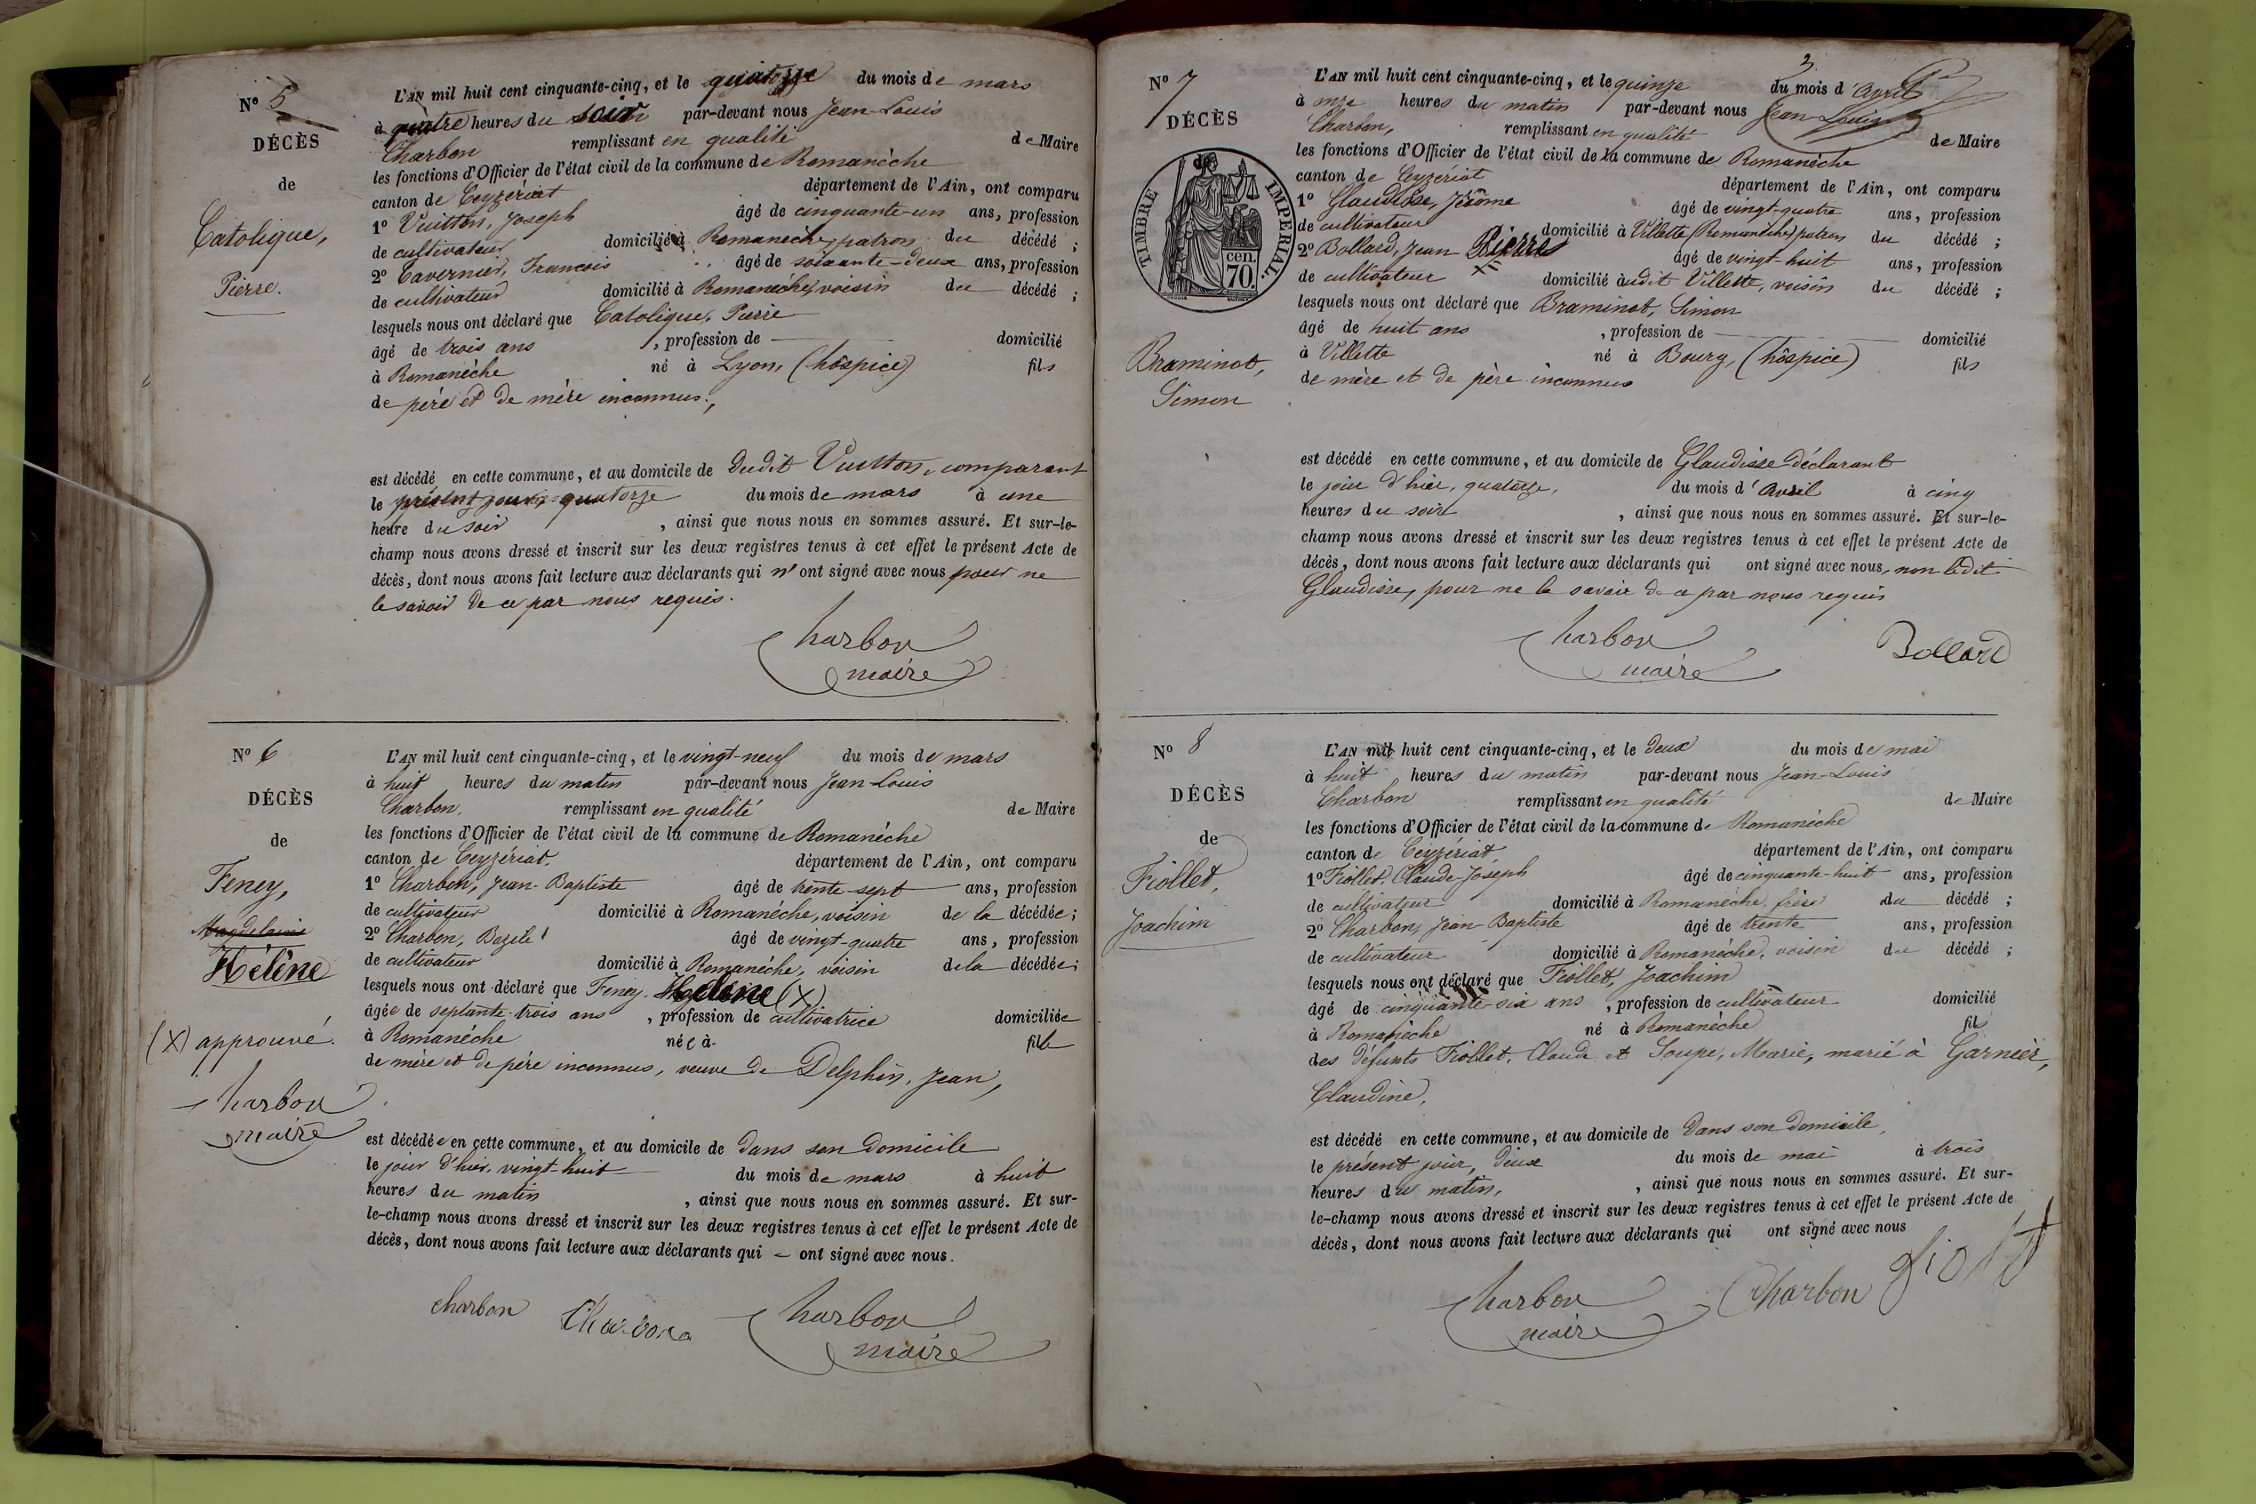 N° 5
DÉCÈS
de
Catolique,
Pierre.
L'AN mil huit cent cinquante-cinq, et le quatorze du mois de mars
à quatre heures du soir par-devant nous Jean-Louis
Charbon remplissant en qualité de Maire
les fonctions d'Officier de l'état civil de la commune de Romanèche
canton de Ceyzériat département de l'Ain, ont comparu
1° Vuitton, Joseph âgé de cinquante-un ans, profession
de cultivateur domicilié à Romanèche, patron du décédé ;
2° Tavernier, Francois âgé de soixante-deux ans, profession
de cultivateur domicilié à Romanèche, voisin du décédé ;
lesquels nous ont déclaré que Catolique, Pierre
âgé de trois ans , profession de domicilié
à Romanèche né à Lyon, (hôspice) fils
de père et de mère inconnus,
est décédé en cette commune, et au domicile de dudit Vuitton, comparant
le présent jour, quatorze du mois de mars à une
heure du soir , ainsi que nous nous en sommes assuré. Et sur-le-
champ nous avons dressé et inscrit sur les deux registres tenus à cet effet le présent Acte de
décès, dont nous avons fait lecture aux déclarants qui n'ont signé avec nous pour ne
le savoir de ce par nous requis.
Charbon
maire
N° 6
DÉCÈS
de
Feney,
Magdelaine
Hélène
(X) approuvé.
Charbon
maire
L'AN mil huit cent cinquante-cinq, et le vingt-neuf du mois de mars
à huit heures du matin par-devant nous Jean-Louis
Charbon, remplissant en qualité de Maire
les fonctions d'Officier de l'état civil de la commune de Romanèche
canton de Ceyzériat, département de l'Ain, ont comparu
1° Charbon, Jean-Baptiste âgé de trente-sept ans, profession
de cultivateur domicilié à Romanèche, voisin de la décédée ;
2° Charbon, Bazile âgé de vingt-quatre ans, profession
de cultivateur domicilié à Romanèche, voisin de la décédée ;
lesquels nous ont déclaré que Feney, Hélène (X)
âgée de septante-trois ans , profession de cultivatrice domiciliée
à Romanèche née à fille
de mère et de père inconnus, veuve de Delphin, Jean,
est décédée en cette commune, et au domicile de dans son domicile
le jour d'hier, vingt-huit du mois de mars à huit
heures du matin , ainsi que nous nous en sommes assuré. Et sur-
le-champ nous avons dressé et inscrit sur les deux registres tenus à cet effet le présent Acte de
décès, dont nous avons fait lecture aux déclarants qui – ont signé avec nous.
charbon Charbon Charbon
maire
3
N° 7
DÉCÈS
de
TIMBRE IMPÉRIAL.
cen.
70.
Braminot,
Simon
L'AN mil huit cent cinquante-cinq, et le quinze du mois d'avril
à onze heures du matin par-devant nous Jean-Louis
Charbon, remplissant en qualité de Maire
les fonctions d'Officier de l'état civil de la commune de Romanèche
canton de Ceyzériat département de l'Ain, ont comparu
1° Glaudisse, Jérôme âgé de vingt-quatre ans, profession
de cultivateur domicilié à Villette (Romanèche) patron du décédé ;
2° Bollard, Jean Pierre âgé de vingt-huit ans, profession
de cultivateur domicilié audit Villette, voisin du décédé ;
lesquels nous ont déclaré que Braminot, Simon
âgé de huit ans , profession de domicilié
à Villette né à Bourg, (hôspice) fils
de mère et de père inconnus
est décédé en cette commune, et au domicile de Glaudisse déclarant
le jour d'hier, quatorze, du mois d'avril à cinq
heures du soir , ainsi que nous nous en sommes assuré. Et sur-le-
champ nous avons dressé et inscrit sur les deux registres tenus à cet effet le présent Acte de
décès, dont nous avons fait lecture aux déclarants qui ont signé avec nous, non ledit
Glaudisse, pour ne le savoir de ce par nous requis
Charbon
maire
Bollard
N° 8
DÉCÈS
de
Fiollet,
Joachim
L'AN mil huit cent cinquante-cinq, et le deux du mois de mai
à huit heures du matin par-devant nous Jean-Louis
Charbon remplissant en qualité de Maire
les fonctions d'Officier de l'état civil de la commune de Romanèche
canton de Ceyzériat, département de l'Ain, ont comparu
1° Fiollet, Claude-Joseph âgé de cinquante-huit ans, profession
de cultivateur domicilié à Romanèche, frère du décédé ;
2° Charbon, Jean-Baptiste âgé de trente ans, profession
de cultivateur domicilié à Romanèche, voisin du décédé ;
lesquels nous ont déclaré que Fiollet, Joachim
âgé de cinquante-six ans , profession de cultivateur domicilié
à Romanèche né à Romanèche fils
des défunts Fiollet, Claude et Soupe, Marie, marié à Garnier,
Claudine,
est décédé en cette commune, et au domicile de dans son domicile,
le présent jour, deux du mois de mai à trois
heures du matin, , ainsi que nous nous en sommes assuré. Et sur-
le-champ nous avons dressé et inscrit sur les deux registres tenus à cet effet le présent Acte de
décès, dont nous avons fait lecture aux déclarants qui ont signé avec nous
Charbon Charbon
maire